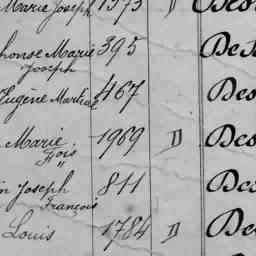 Marie Joseph 1373 D
Marie 395 De
Joseph
Eugène Martial 467 Des
Marie 1969 D Des
Fois "
Joseph 811 Des
François
Louis 1784 D De